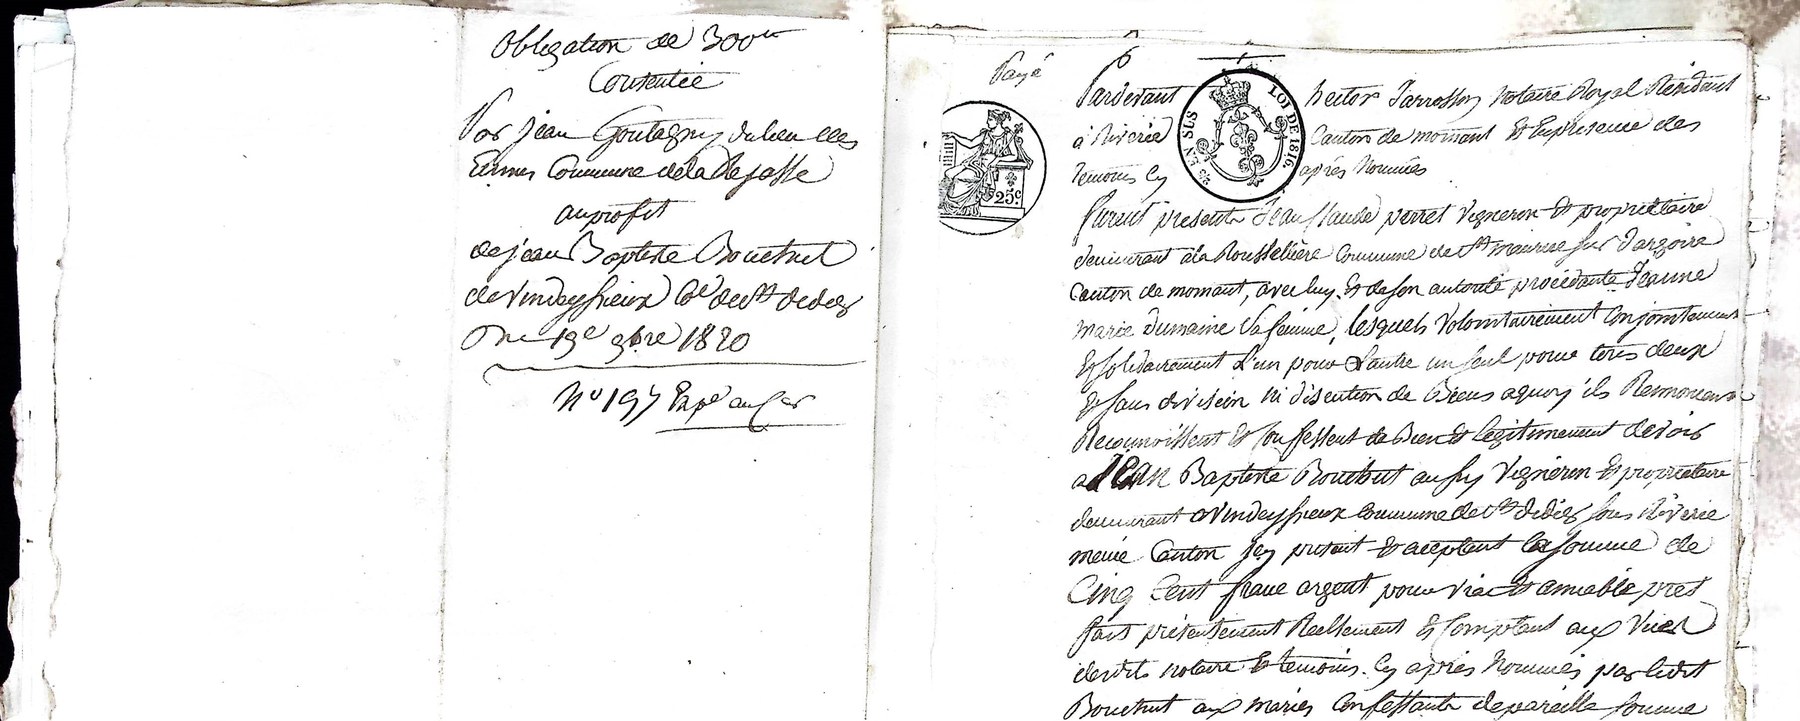 Obligation de 300
Consentie
Par jean Goutagny du lieu des
Commune de la Rajasse
au profit
de jean Baptiste Bouchut
de Vindeyssieux Cne de St didier
Du 19e 9bre 1820
No 197
Payé
Pardevant hector Jarrosson Notaire Royal Résidant
à Riverie Canton de mornant Et En présence des
temoins Cy après Nommés
EN SUS
LOI DE 1816.
25
25c
furent présents Jean Claude perret Vigneron Et propriétaire
demeurant à la Rousselière Commune de St maurice sur dargoire
Canton de mornant, avec luy, Et de son autorité procédante Jeanne
marie dumaine Sa femme, lesquels Volontairement Conjointement
Et solidairement L'un pour L'autre un seul pour tous deux
Et sans division Ni discution de Biens aquoy ils Renoncent
Reconnoissent Et Confessent de Bien Et légitimement devoir
a Jean Baptiste Bouchut aussy Vigneron Et propriétaire
demeurant a Vindeyssieux Commune de St didier sous Riverie
même Canton Icy présent Et aceptant la somme de
Cinq Cent franc argent pour Vrai Et amiable prêt
fait présentement Reellement Et Comptant aux Vues
desdits notaire Et témoins Cy après Nommés par ledit
Bouchut aux mariés Confessants de pareille somme